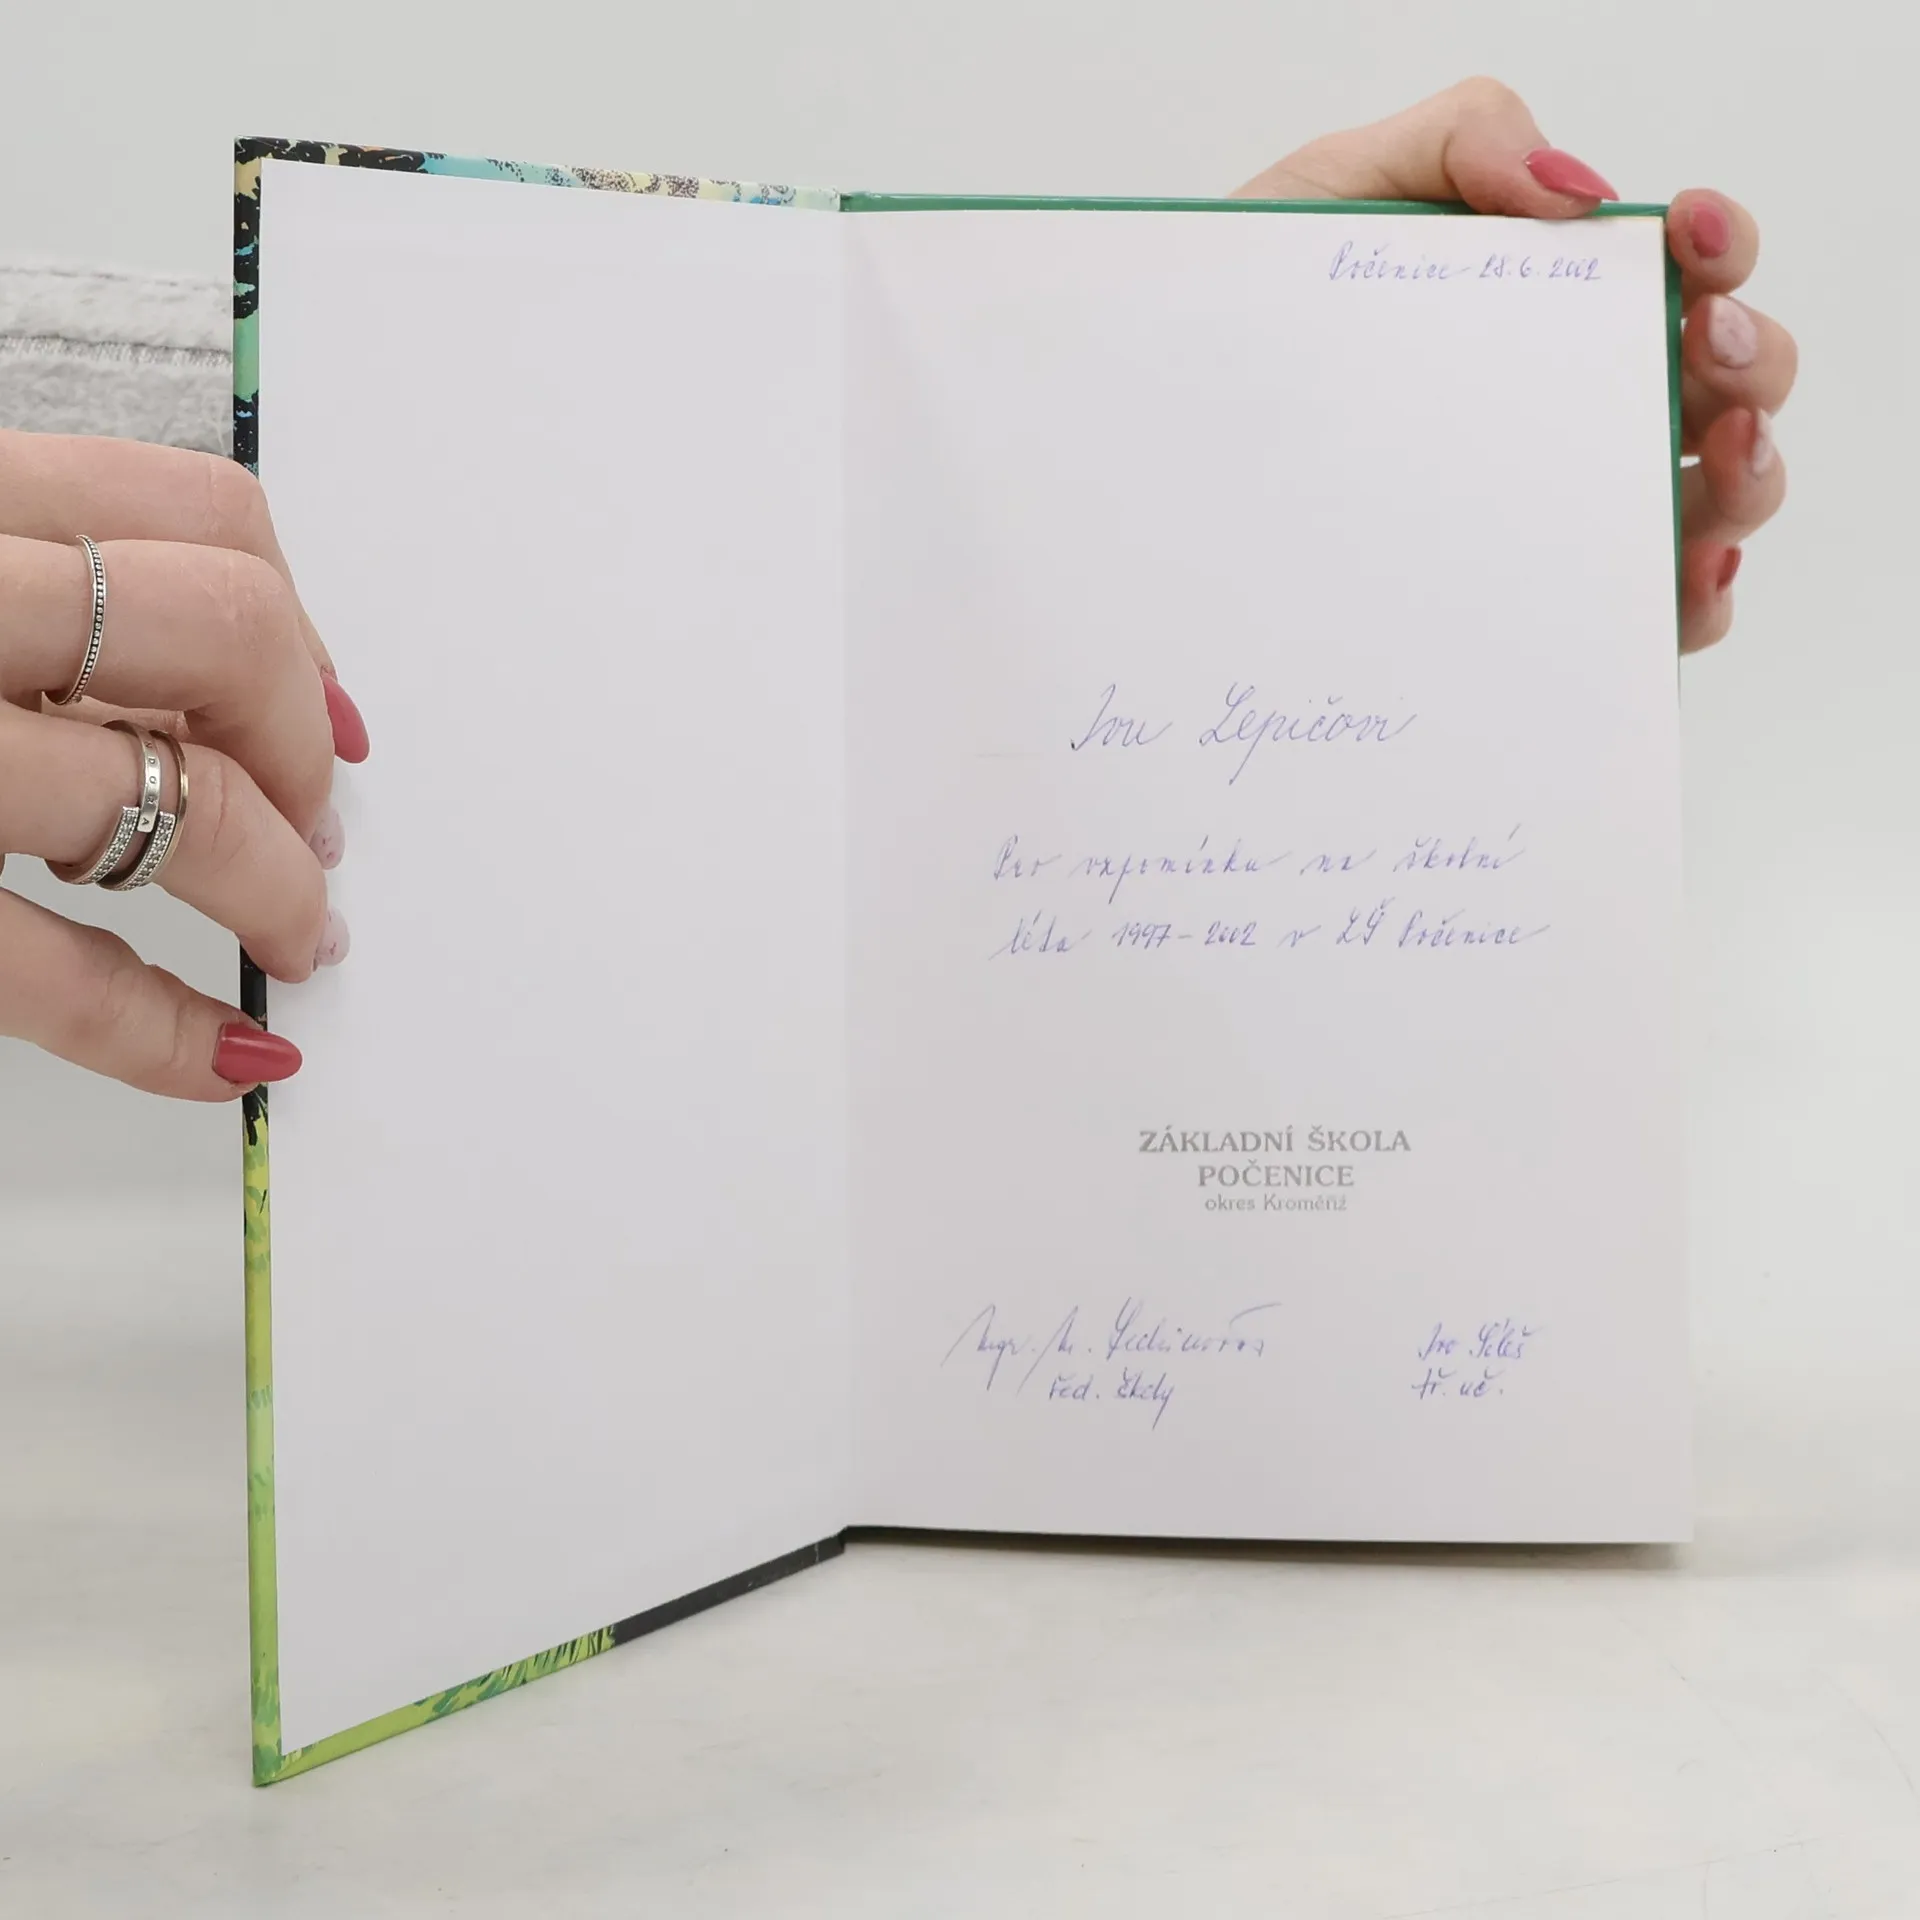 Počenice 28.6.2002
Ivu Lepičovi
Pro vzpomínku na školní
léta 1997-2002 v ZŠ Počenice
ZÁKLADNÍ ŠKOLA
POČENICE
okres Kroměříž
Mgr. M.
řed. školy
Ivo
tř. uč.